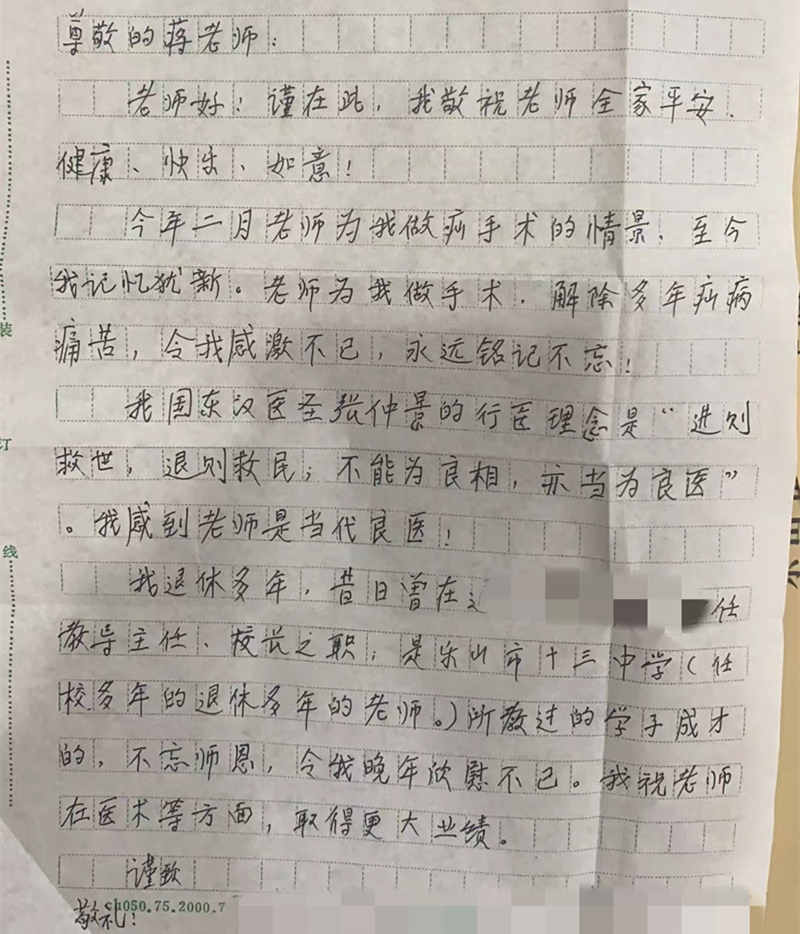 尊敬的蒋老师：
老师好！谨在此，我敬祝老师全家平安、
健康、快乐、如意！
今年二月老师为我做疝手术的情景，至今
我记忆犹新。老师为我做手术，解除多年疝病
痛苦，令我感激不已，永远铭记不忘！
我国东汉医圣张仲景的行医理念是“进则
救世，退则救民；不能为良相，亦当为良医”
。我感到老师是当代良医！
我退休多年，昔日曾在 任
教导主任、校长之职，是乐山市十三中学（任
校多年的退休多年的老师。）所教过的学子成才
的，不忘师恩，令我晚年欣慰不已。我祝老师
在医术等方面，取得更大业绩。
谨致
敬礼！
ch050.75.2000.7
装
订
线